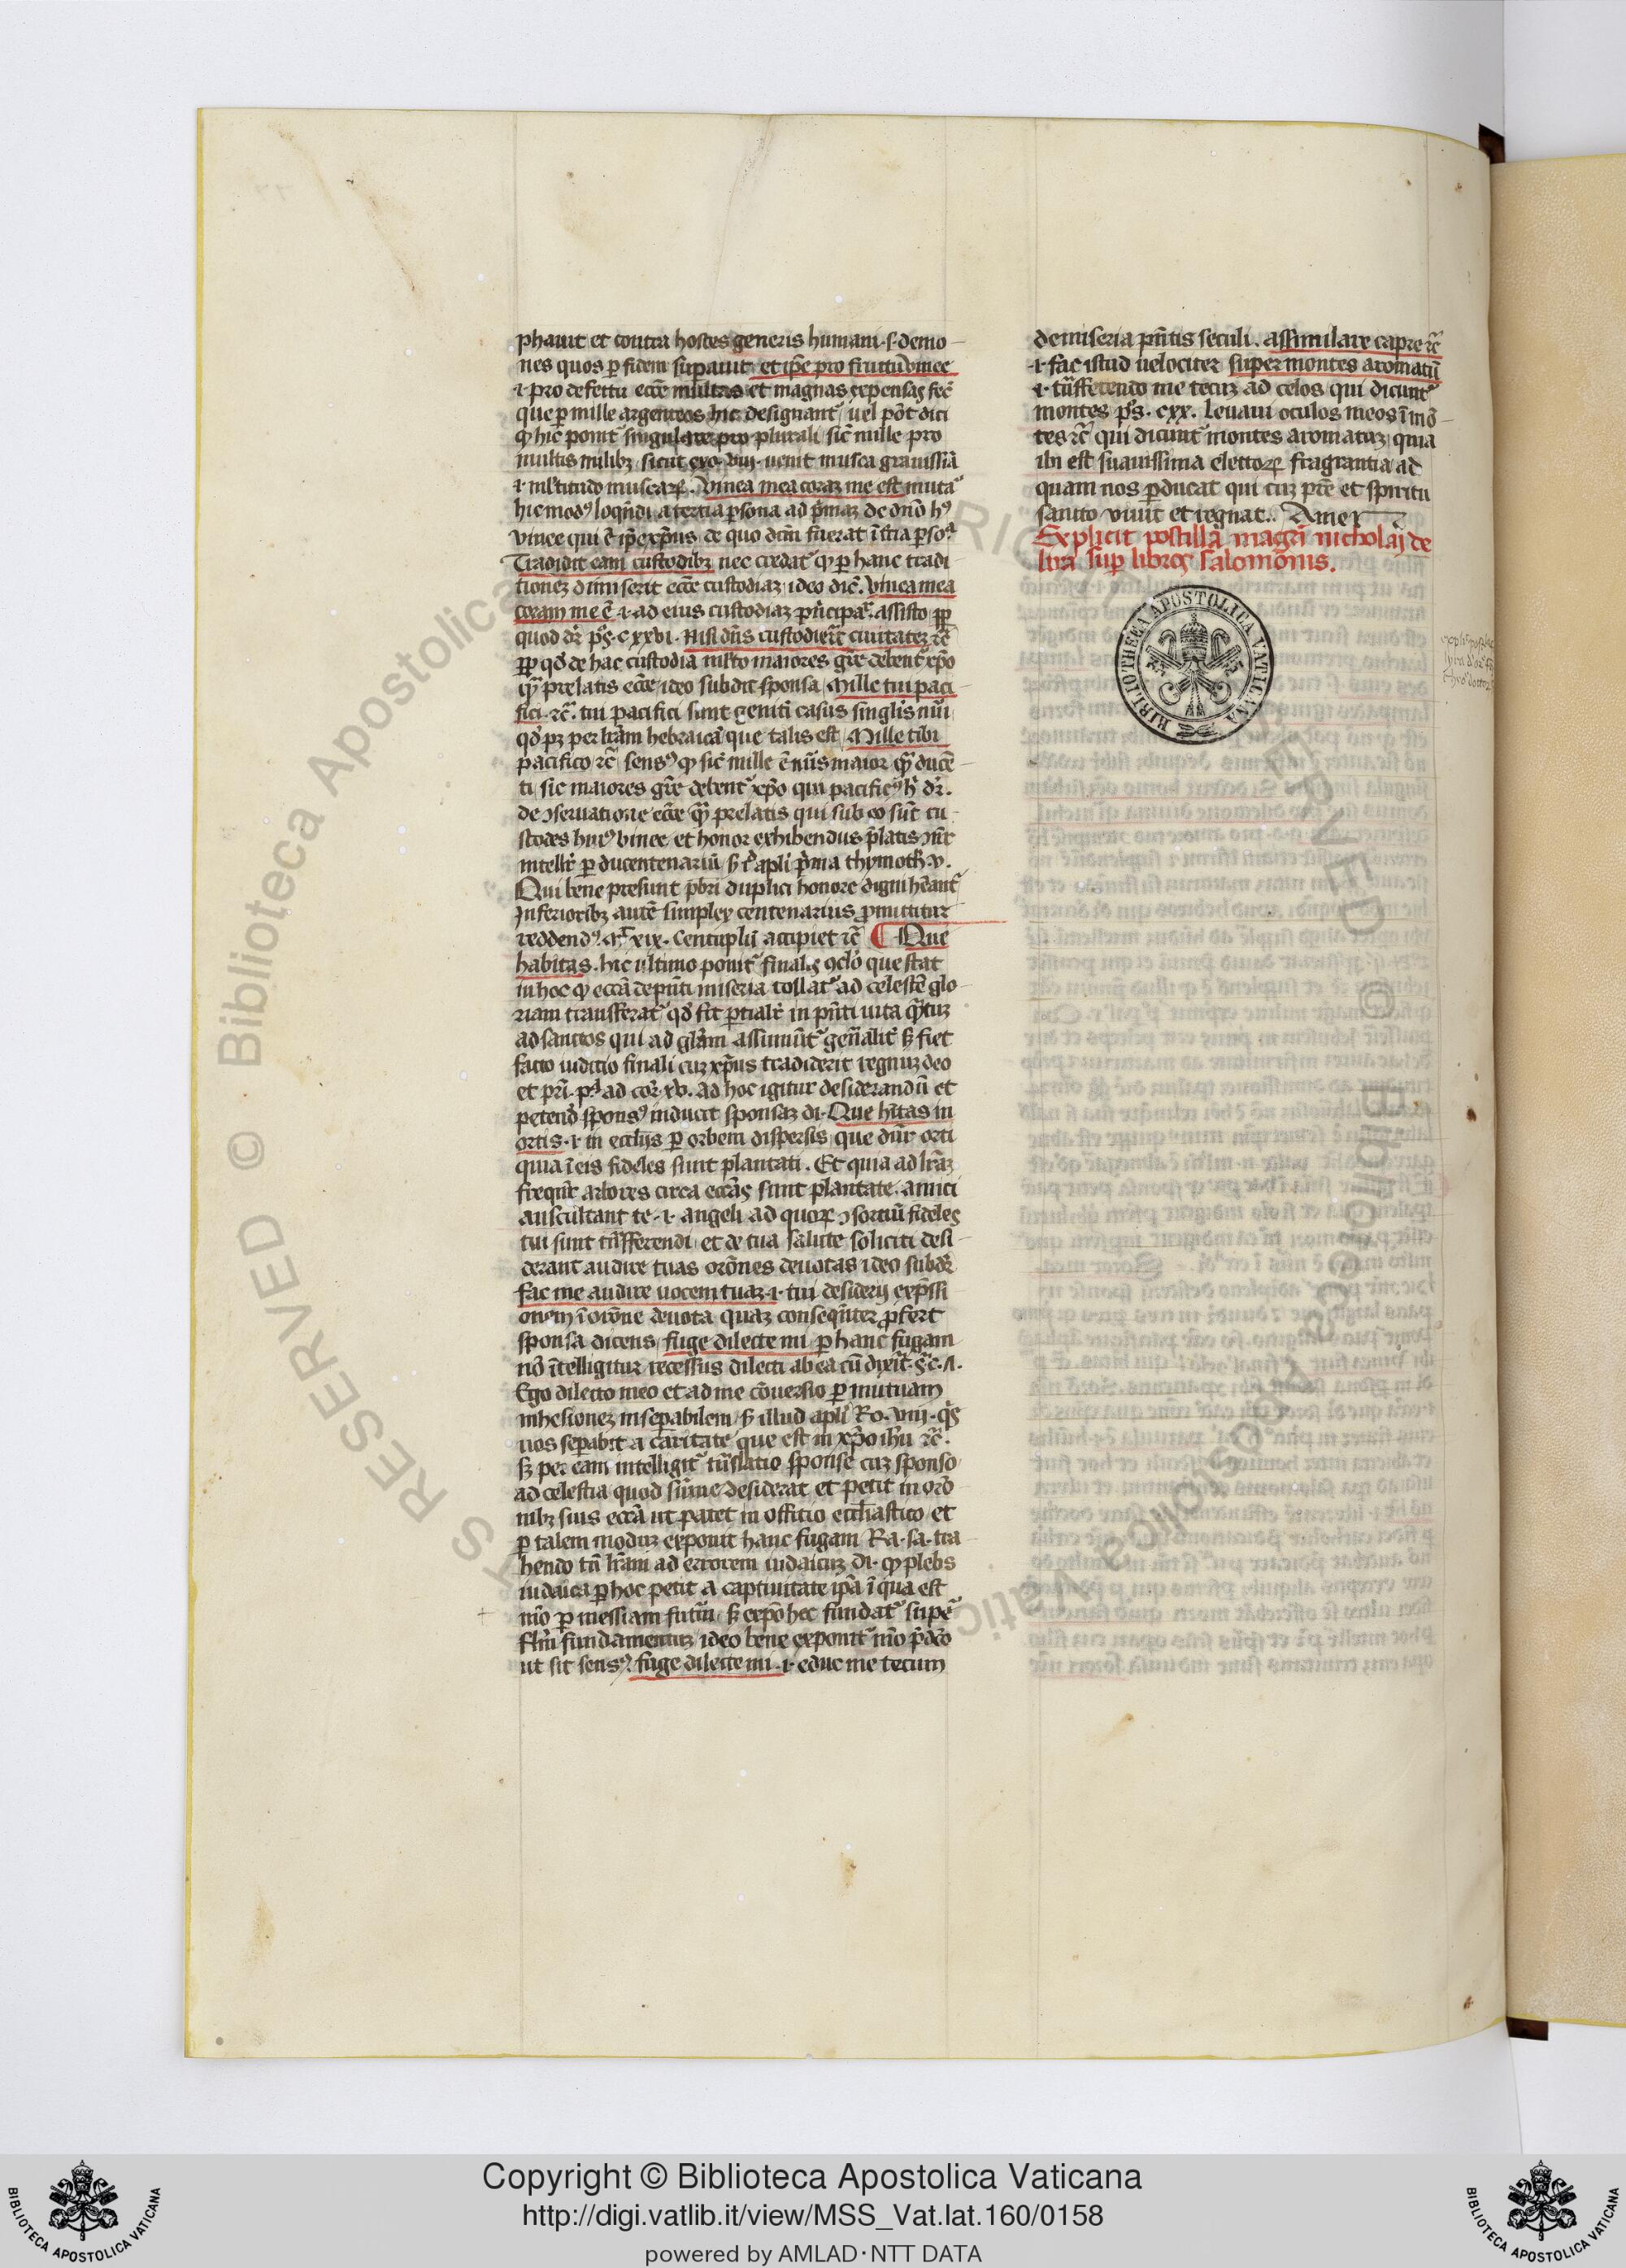 phauit et contra hostes generis humani .s. demo
nes quos ꝑ fidem suꝑauit et ip̄e pro fructu vinee
⁊ pro defectu ecc̄e multas et magnas expensas fec̄
que ꝑ mille argenteos hic designant᷑ uel pōt dici
ꝙ hic ponit᷑ singulare pro plurali sic̄ mille pro
multis milibꝫ sicut exo. viij. uenit musca grauissiā
⁊ ml̓titudo muscaꝝ. Vinea mea coraꝫ me est mutat᷑
hic modꝰ loqn̄di a tertia ꝑsona ad p̄maꝫ de dn̄o hꝰ
vinee qui ē ip̄e xp̄us de quo dc̄m fuerat ī t̓tia ꝑsoᵃ
Tradidit eam custodibꝫ nec credat᷑ ꝙ ꝑ hanc tradi
tioneꝫ dimiserit ecc̄e custodiaꝫ ideo dic̄. vinea mea
coram me ē ⁊ ad eius custodiaꝫ pn̄cipalr̄. assisto ꝓpt̓
quod dr̄ ps̄. cxxvi. Nisi dn̄s custodierit ciuitateꝫ ⁊c̄
ꝓpt̓ qd̄ de hac custodia ml̓to maiores gr̄e debent᷑ xp̄o
qꝫ prelatis ecc̄e ideo subdit sponsa Mille tui paci
fici ⁊c̄. tui pacifici sunt geniti casus singl̓is nūi
qd̄ pꝫ per lr̄am hebraicā que talis est Mille tibi
pacifico ⁊c̄ sensꝰ ꝙ sic̄ mille ē nūs maior qꝫ ducē
ti sic maiores gr̄e debent᷑ xp̄o qui pacificꝰ h̓ dr̄.
de ↄseruatione ecc̄e qꝫ prelatis qui sub eo sūt cu
stodes huiꝰ vinee et honor exhibendus p̄latis ↄn̄r
intellr̄ ꝑ ducentenariū apl̓i p̄ma thymoth. v.
Qui bene presunt pb̄ri duplici honore digni hēant᷑
Inferioribꝫ autē simplex centenarius ꝓmittitur
reddendꝰ. Mᵗ xix. Centuplū accipiet ⁊c̄ Que
habitas. hic ultimo ponit᷑ finalis ↄclō que stat
in hoc ꝙ ecc̄ā de pn̄ti miseria tollat᷑ ad celestē glo
riam transferat᷑ qd̄ fit ꝑtialr̄ in pn̄ti uita qꝫtuꝫ
ad sanctos qui ad gl̄am assumūt᷑ gen̄alit̓ sꝫ fiet
facto iuditio finali cuꝫ xp̄us tradiderit regnuꝫ deo
et pr̄i. pᵃ ad cor̄. xv. ad hoc igitur desiderandū et
petend̄ sponsꝰ inducit sponsaꝫ di. Que hītas in
ortis .⁊ in eccl̓ijs ꝑ orbem dispersis que dn̄r orti
quia ī eis fideles sunt plantati. Et quia ad lr̄aꝫ
frequn̄t̓ arbores circa ecc̄as sunt plantate. amici
auscultant te .⁊ angeli ad quoꝝ ↄsortiū fideles
tui sunt trn̄sferendi et de tua salute soliciti desi
derant audire tuas orōnes deuotas ideo subdr̄
Fac me audire uocem tuaꝫ .⁊ tui desiderij exp̄ssi
onem ī orōne deuota quaꝫ conseqn̄ter ꝓfert
sponsa dicens fuge dilecte mi ꝑ hanc fugam
nō ītelligitur recessus dilecti ab ea cū dixit.
Ego dilecto meo et ad me cōuersio ꝑ mutuam
inhesioneꝫ insepabilem illud apl̓i Ro. viij. qs̄
nos sepabit a caritate que est in xp̄o ih̄u ⁊c̄.
sꝫ per eam intelligit᷑ trn̄slatio sponse cuꝫ sponso
ad celestia quod sūme desiderat et petit in orō
nibꝫ suis ecc̄a ut patet in officio ecclesiastico et
ꝑ talem moduꝫ exponit hanc fugam Ra. sa. tra
hendo tn̄ lr̄am ad errorem iudaicuꝫ di. ꝙ plebs
iudaica ꝑ hoc petit a captiuitate ip̄a ī qua est
mō ꝑ messiam futuꝝ sꝫ expō hec fundat᷑ super
flm̄ fundamentuꝫ ideo bene exponit᷑ mō p̄dc̄o
ut sit sensꝰ. fuge dilecte mi .⁊ educ me tecum
de miseria pn̄tis seculi. assimilare capre ⁊c̄
⁊ fac istud uelociter super montes aromatū
⁊ trn̄sferendo me tecuꝫ ad celos qui dicunt᷑
montes ps̄. cxx. Leuaui oculos meos ī mō
tes ⁊c̄ qui dicunt᷑ montes aromatuꝫ quia
ibi est suauissima electoꝝ fragrantia ad
quam nos ꝑducat qui cuꝫ pr̄e et spiritu
sancto viuit et regnat.. Amen
Explicit postilla magr̄i nicholaj de
lira sup̄ libros salomonis.
BIBLIOTHECA APOSTOLICA VATICANA
RESERVED © Biblioteca Apostolica Vaticana
Copyright © Biblioteca Apostolica Vaticana
http://digi.vatlib.it/view/MSS_Vat.lat.160/0158
powered by AMLAD·NTT DATA
BIBLIOTECA APOSTOLICA VATICANA
BIBLIOTECA APOSTOLICA VATICANA